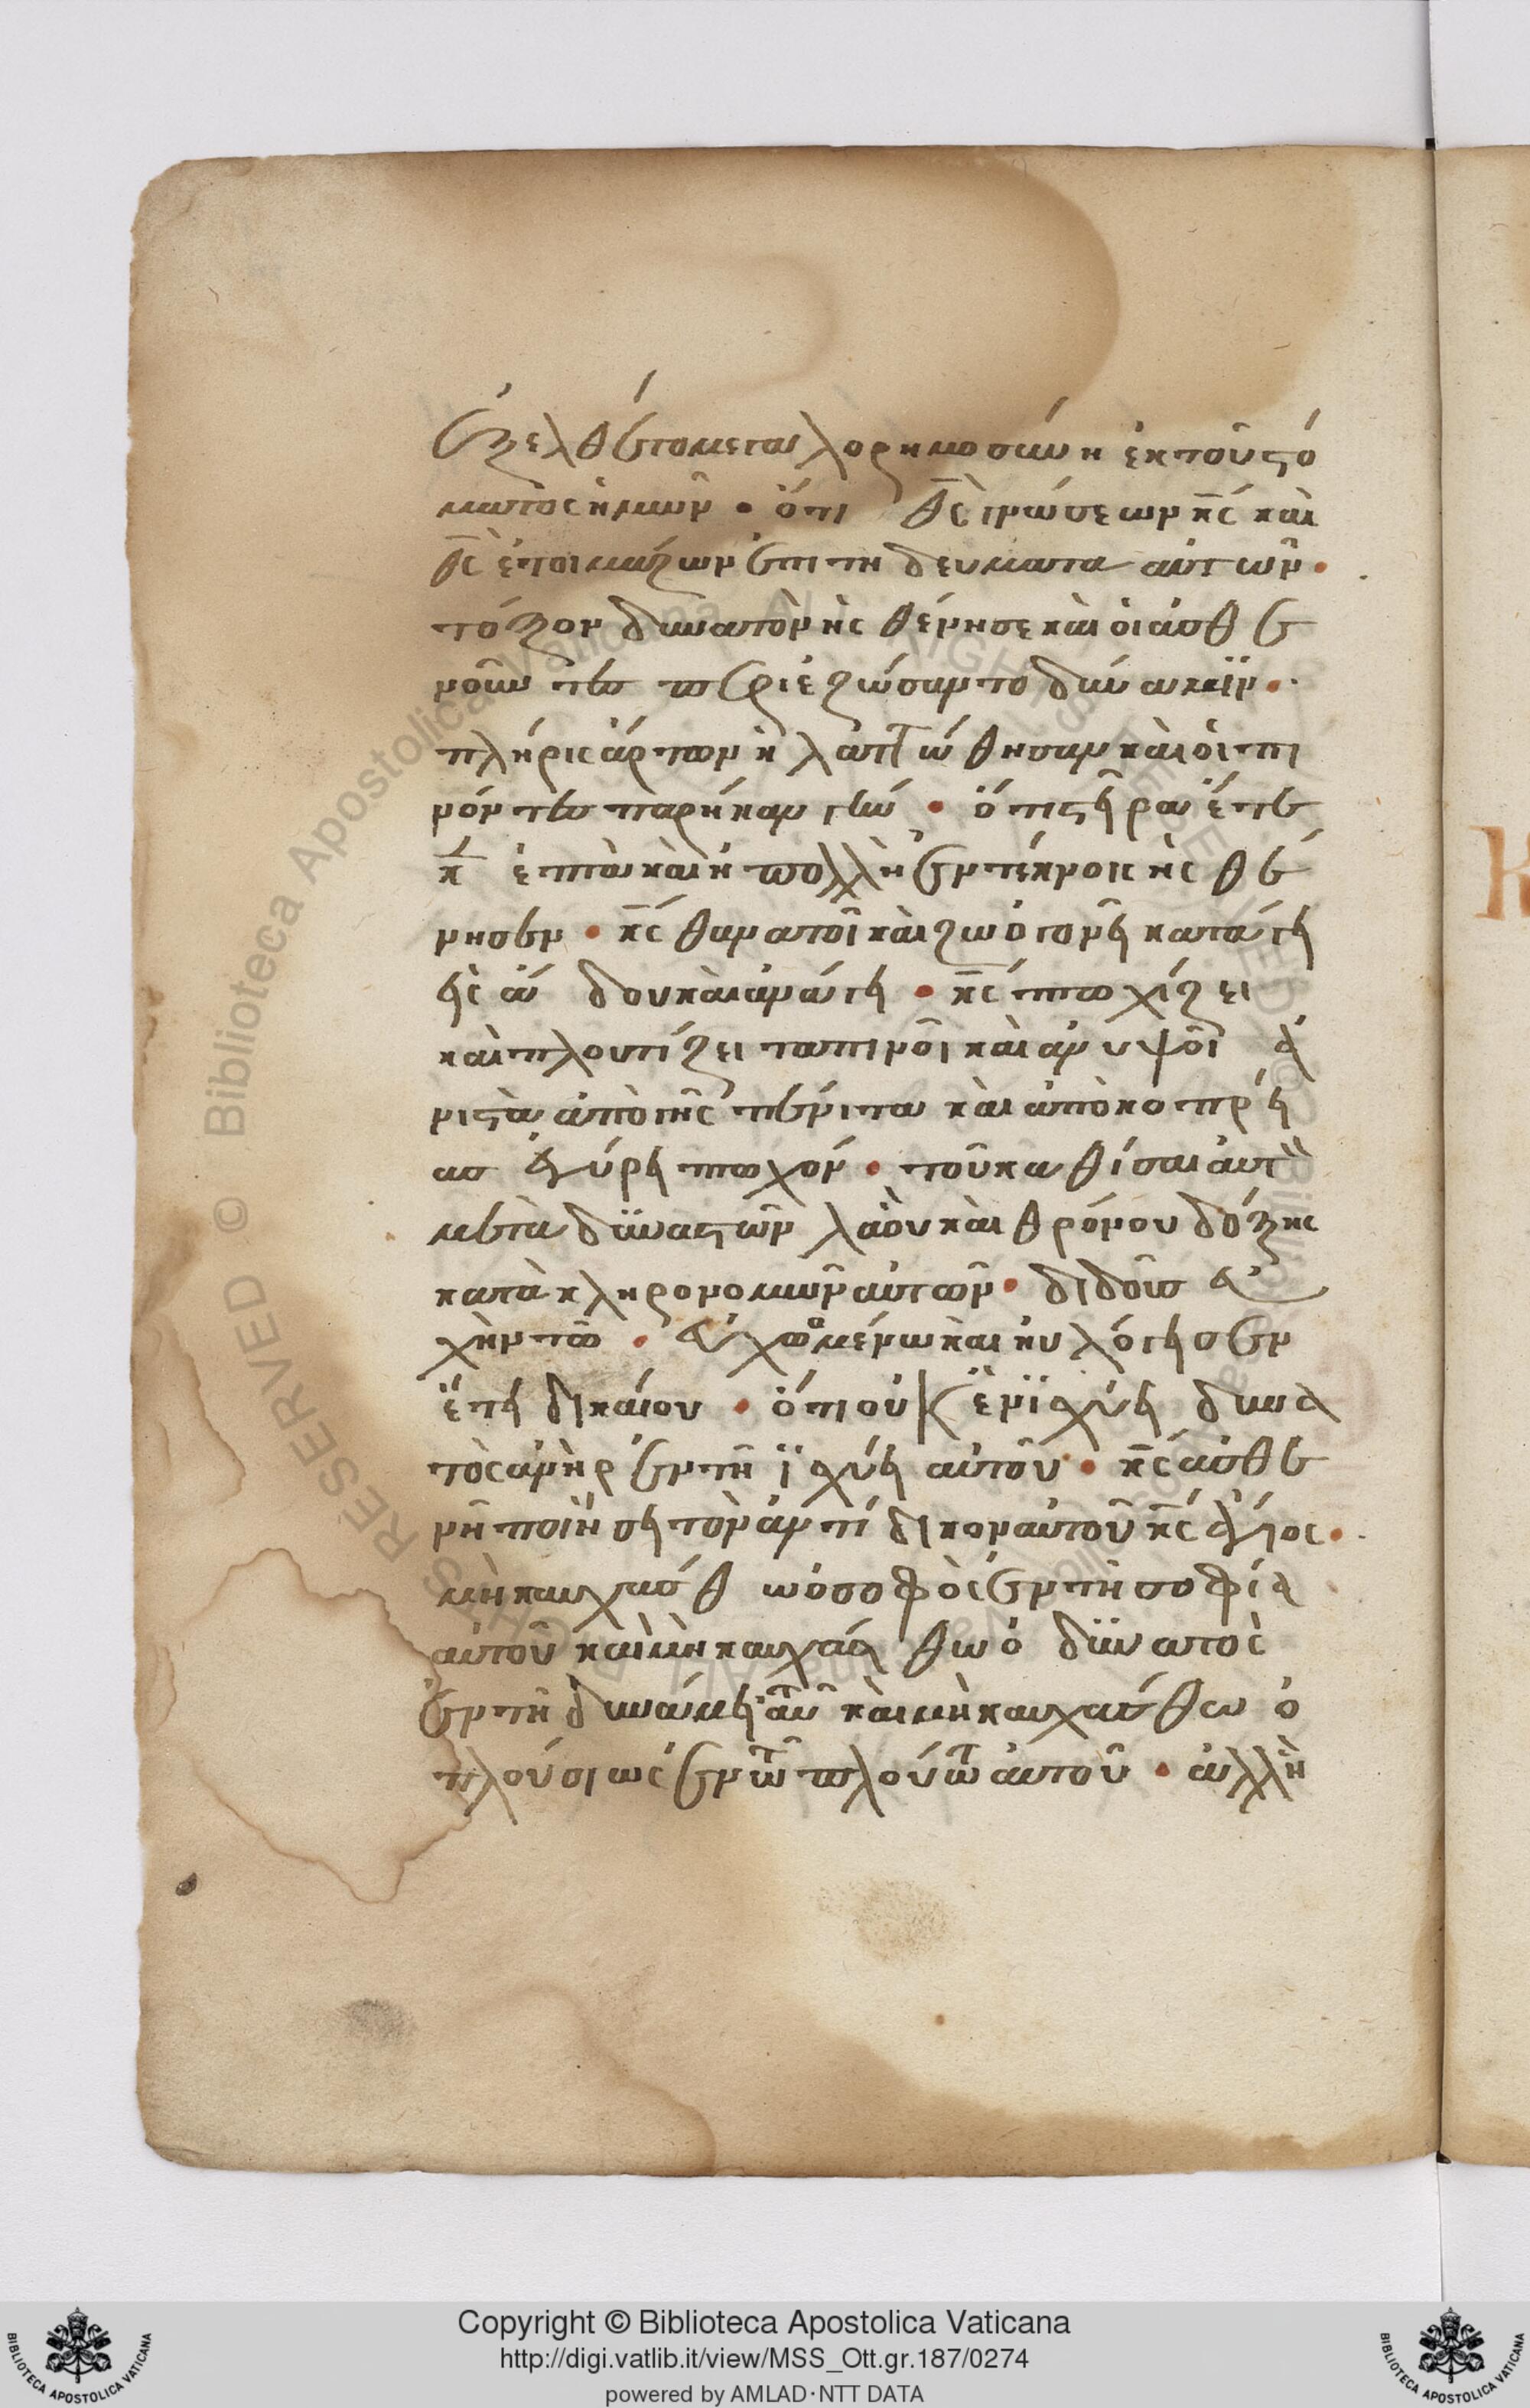 ἐξελθέτο μεγαλορημοσύνη ἐκ τοῦ στό
ματος ἡμῶν • ὅτι θ̅ς̅ γνώσεων κ̅ς̅ καὶ
θ̅ς̅ ἑτοιμάζων ἐπιτηδεύματα αὐτῶν •
τόξον δυνατὸν ἠσθένησε καὶ οἱ ἀσθε
νοῦντες περιεζώσαντο δύναμϊν •
πλήρις ἄρτων ἠλαττώθησαν καὶ οἱ πι
νόντες παρῆκαν γῆν • ὅτι στεῖρα ἔτε
κ ἑπτὰ καὶ ἡ πολλὴ ἐν τέκνοις ἠσθέ
νησεν • κ̅ς̅ θανατοῖ καὶ ζωογονεῖ κατάγει
εἰς ἅδου καὶ ἀνάγει • κ̅ς̅ πτωχίζει
καὶ πλουτίζει ταπινοῖ καὶ ἀνυψοῖ ἀ
νιστᾶ ἀπὸ γῆς πένιτα καὶ ἀπὸ κοπρεί
ασ ἐγείρει πτωχόν • τοῦ καθίσαι αὐτὸν
μετὰ δϋναστῶν λαοῦ καὶ θρόνου δόξης
κατὰκληρονομῶν αὐτῶν • διδοὺσ εὐ
χὴν τῶ • εὐχωμένω καὶ ηὐλόγησεν
ἔτη δικαίου • ὅτι οὐκ ἐν ἰσχύει δυνα
τὸς ἀνὴρ ἐν τῆ ϊσχύει αὐτοῦ • κ̅ς̅ ἀσθε
νῆ ποϊήσει τὸν ἀντίδικον αὐτοῦ κ̅ς̅ ἅγιος •
μὴ καυχάσθω ὁ σοφὸς ἐν τῆ σοφία
αὐτοῦ καὶ μὴ καυχάσθω ὁ δϋνατὸς
ἐν τῆ δυνάμει αὐτοῦ καὶ μὴ καυχάσθω ὁ
πλούσιως ἐν τῶ πλούτω αὐτοῦ • ἀλλ' ἢ
Copyright © Biblioteca Apostolica Vaticana
http://digi.vatlib.it/view/MSS_Ott.gr.187/0274
powered by AMLAD·NTT DATA